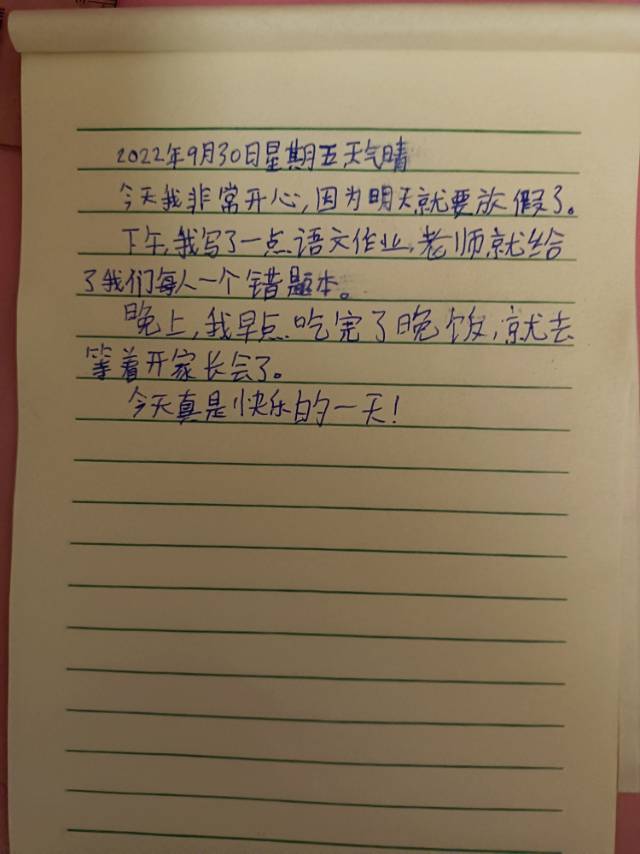 2022年9月30日星期五天气晴
今天我非常开心,因为明天就要放假了。
下午,我写了一点语文作业,老师就给
了我们每人一个错题本。
晚上,我早点吃完了晚饭,就去
等着开家长会了。
今天真是快乐的一天!